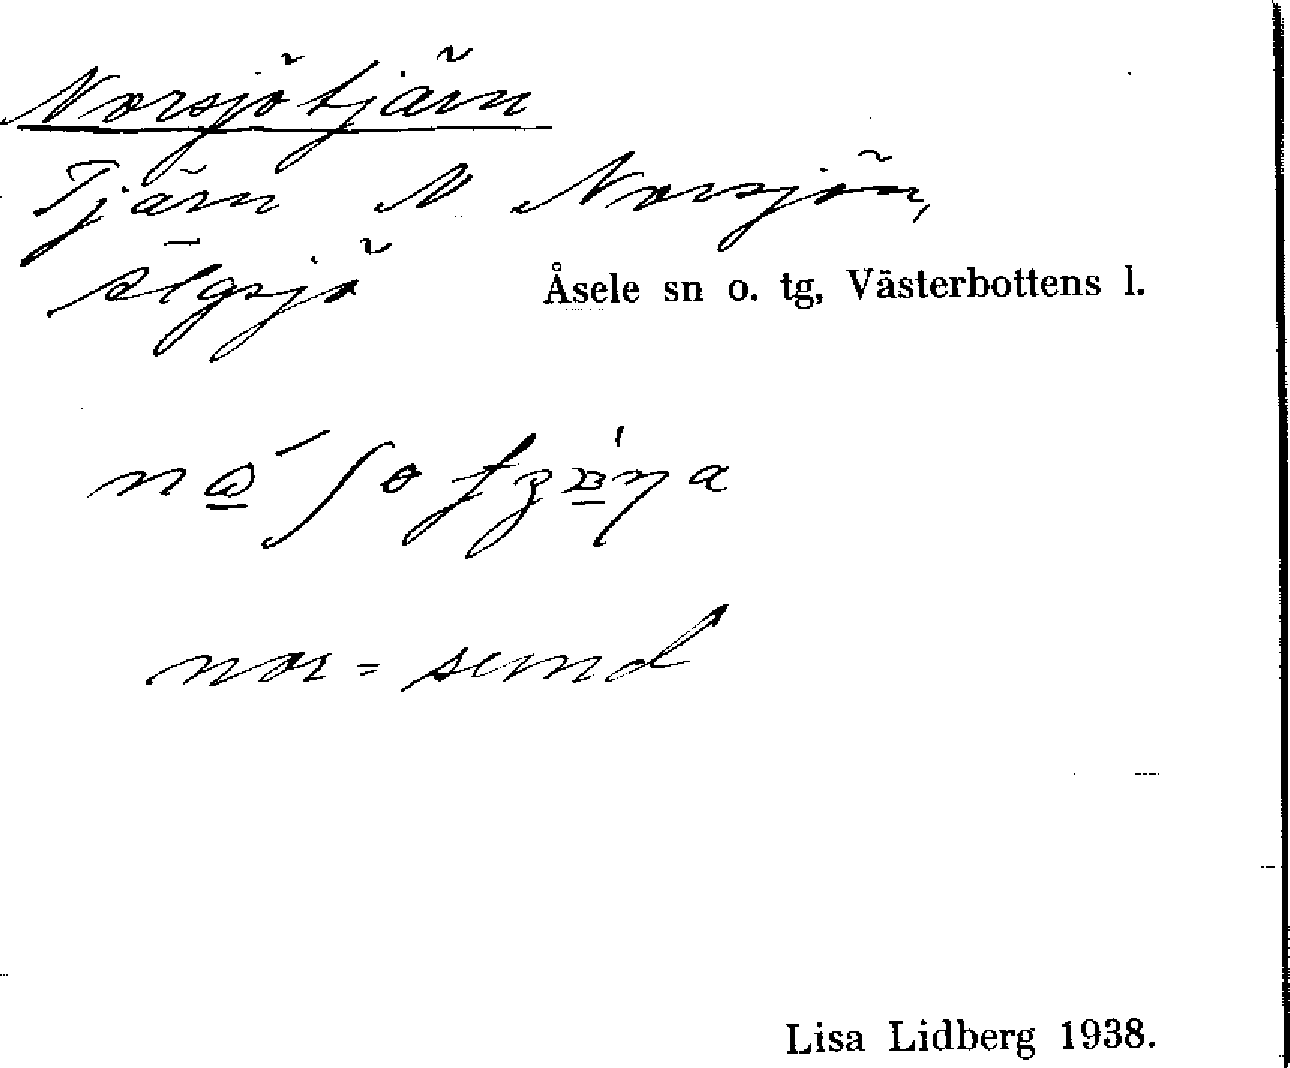 Norsjötjärn
Tjärn N Norsjön,
Älgsjö Åsele sn o. tg, Västerbottens l.
nor = sund
Lisa Lidberg 1938.